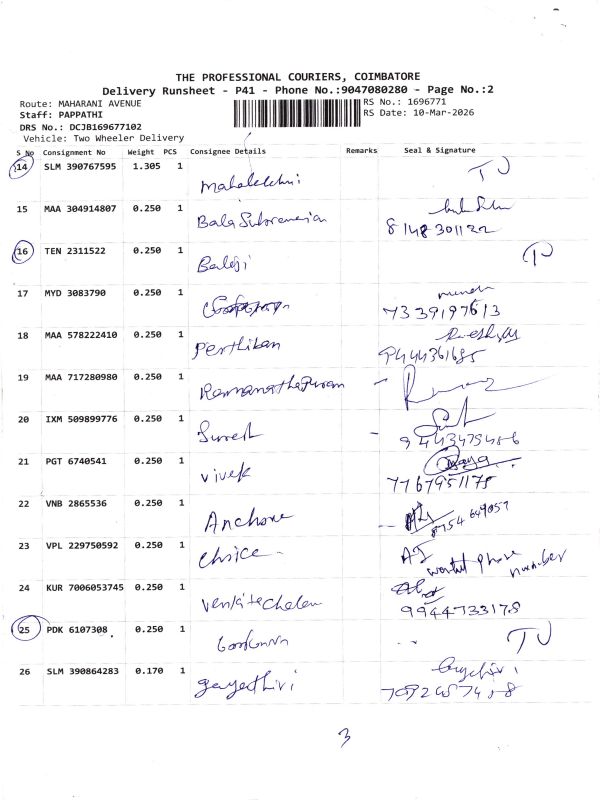 THE PROFESSIONAL COURIERS, COIMBATORE
Delivery Runsheet - P41 - Phone No.:9047080280 - Page No.:2
Route: MAHARANI AVENUE
RS No.: 1696771
Staff: PAPPATHI
RS Date: 10-Mar-2026
DRS No.: DCJB169677102
Vehicle: Two Wheeler Delivery
S No Consignment No Weight PCS Consignee Details Remarks Seal & Signature
14 SLM 390767595 1.305 1 TJ
15 MAA 304914807 0.250 1 Bala Subramanian
8148301122
16 TEN 2311522 0.250 1 Balaji
17 MYD 3083790 0.250 1
7339197613
18 MAA 578222410 0.250 1 Parthiban
9444361685
19 MAA 717280980 0.250 1 Ramanathapuram
20 IXM 509899776 0.250 1 Suresh
9443475486
21 PGT 6740541 0.250 1 Vivek
7767951175
22 VNB 2865536 0.250 1 Anchore
8754649057
23 VPL 229750592 0.250 1 Choice
phone number
24 KUR 7006053745 0.250 1 Venkatechalam
9944733178
25 PDK 6107308 0.250 1 TJ
26 SLM 390864283 0.170 1 gayathiri
3